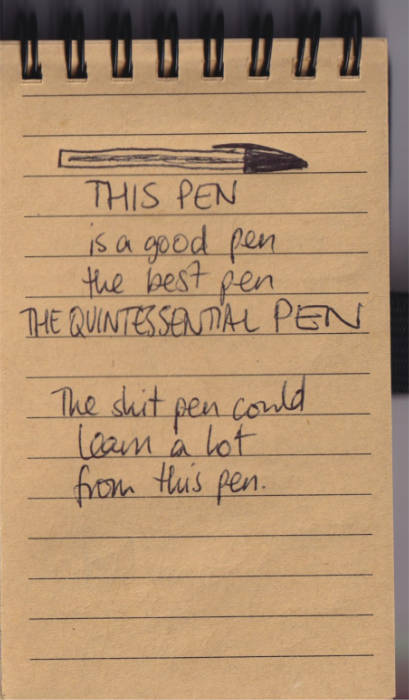 THIS PEN
is a good pen
the best pen
THE QUINTESSENTIAL PEN
The shit pen could
learn a lot
from this pen.